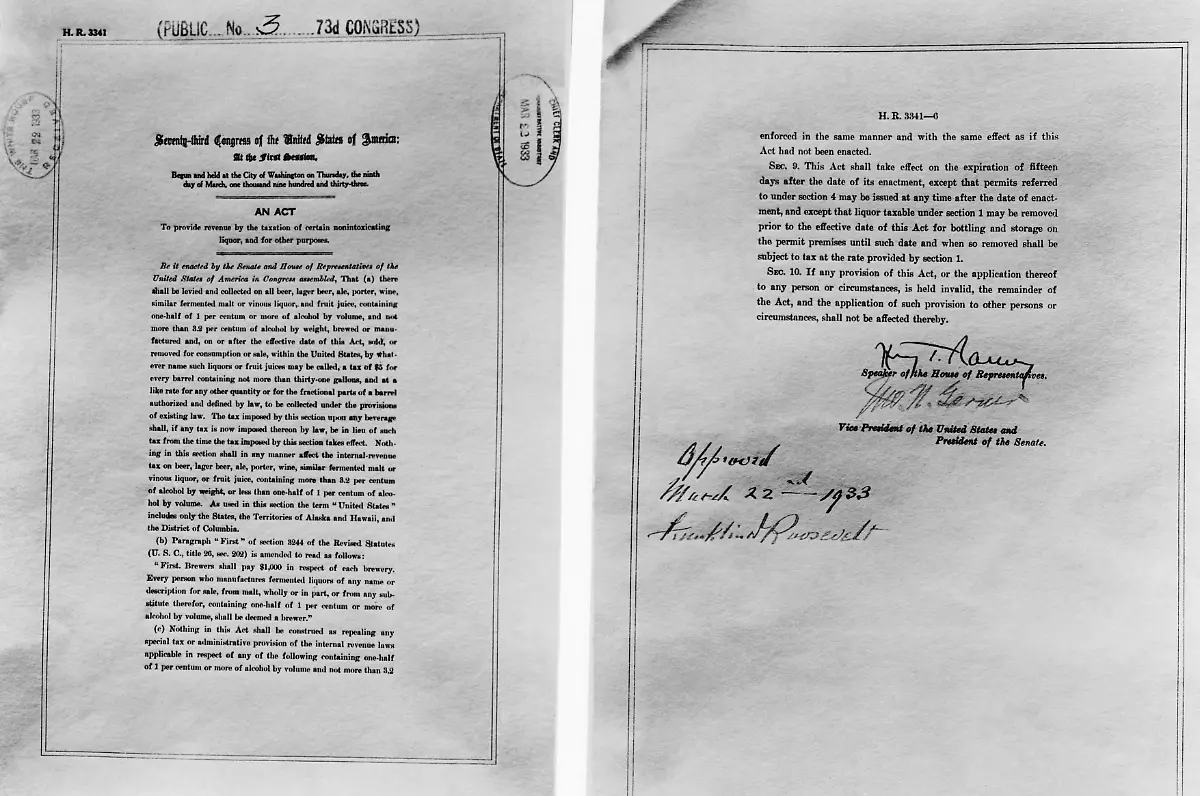 H. R. 3341
(PUBLIC No. 3 73d CONGRESS)
THE WHITE HOUSE
MAR 22 1933
RECEIVED
CHIEF CLERK AND
ADMINISTRATIVE ASSISTANT
MAR 23 1933
DEPARTMENT OF STATE
Seventy-third Congress of the United States of America;
At the First Session,
Begun and held at the City of Washington on Thursday, the ninth
day of March, one thousand nine hundred and thirty-three.
AN ACT
To provide revenue by the taxation of certain nonintoxicating
liquor, and for other purposes.
Be it enacted by the Senate and House of Representatives of the
United States of America in Congress assembled, That (a) there
shall be levied and collected on all beer, lager beer, ale, porter, wine,
similar fermented malt or vinous liquor, and fruit juice, containing
one-half of 1 per centum or more of alcohol by volume, and not
more than 3.2 per centum of alcohol by weight, brewed or manu-
factured and, on or after the effective date of this Act, sold, or
removed for consumption or sale, within the United States, by what-
ever name such liquors or fruit juices may be called, a tax of $5 for
every barrel containing not more than thirty-one gallons, and at a
like rate for any other quantity or for the fractional parts of a barrel
authorized and defined by law, to be collected under the provisions
of existing law. The tax imposed by this section upon any beverage
shall, if any tax is now imposed thereon by law, be in lieu of such
tax from the time the tax imposed by this section takes effect. Noth-
ing in this section shall in any manner affect the internal-revenue
tax on beer, lager beer, ale, porter, wine, similar fermented malt or
vinous liquor, or fruit juice, containing more than 3.2 per centum
of alcohol by weight, or less than one-half of 1 per centum of alco-
hol by volume. As used in this section the term "United States"
includes only the States, the Territories of Alaska and Hawaii, and
the District of Columbia.
(b) Paragraph "First" of section 3244 of the Revised Statutes
(U. S. C., title 26, sec. 202) is amended to read as follows:
"First. Brewers shall pay $1,000 in respect of each brewery.
Every person who manufactures fermented liquors of any name or
description for sale, from malt, wholly or in part, or from any sub-
stitute therefor, containing one-half of 1 per centum or more of
alcohol by volume, shall be deemed a brewer."
(c) Nothing in this Act shall be construed as repealing any
special tax or administrative provision of the internal revenue laws
applicable in respect of any of the following containing one-half
of 1 per centum or more of alcohol by volume and not more than 3.2
H. R. 3341—6
enforced in the same manner and with the same effect as if this
Act had not been enacted.
SEC. 9. This Act shall take effect on the expiration of fifteen
days after the date of its enactment, except that permits referred
to under section 4 may be issued at any time after the date of enact-
ment, and except that liquor taxable under section 1 may be removed
prior to the effective date of this Act for bottling and storage on
the permit premises until such date and when so removed shall be
subject to tax at the rate provided by section 1.
SEC. 10. If any provision of this Act, or the application thereof
to any person or circumstances, is held invalid, the remainder of
the Act, and the application of such provision to other persons or
circumstances, shall not be affected thereby.
Henry T. Rainey
Speaker of the House of Representatives.
Jno. N. Garner
Vice President of the United States and
President of the Senate.
Approved
March 22nd — 1933
Franklin D Roosevelt